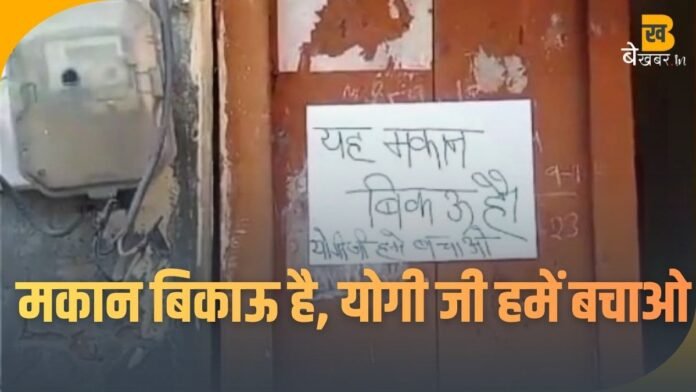 ख
बेखबर.in
यह मकान
बिकाऊ है।
योगीजी हमे बचाओ
9-1
23
मकान बिकाऊ है, योगी जी हमें बचाओ